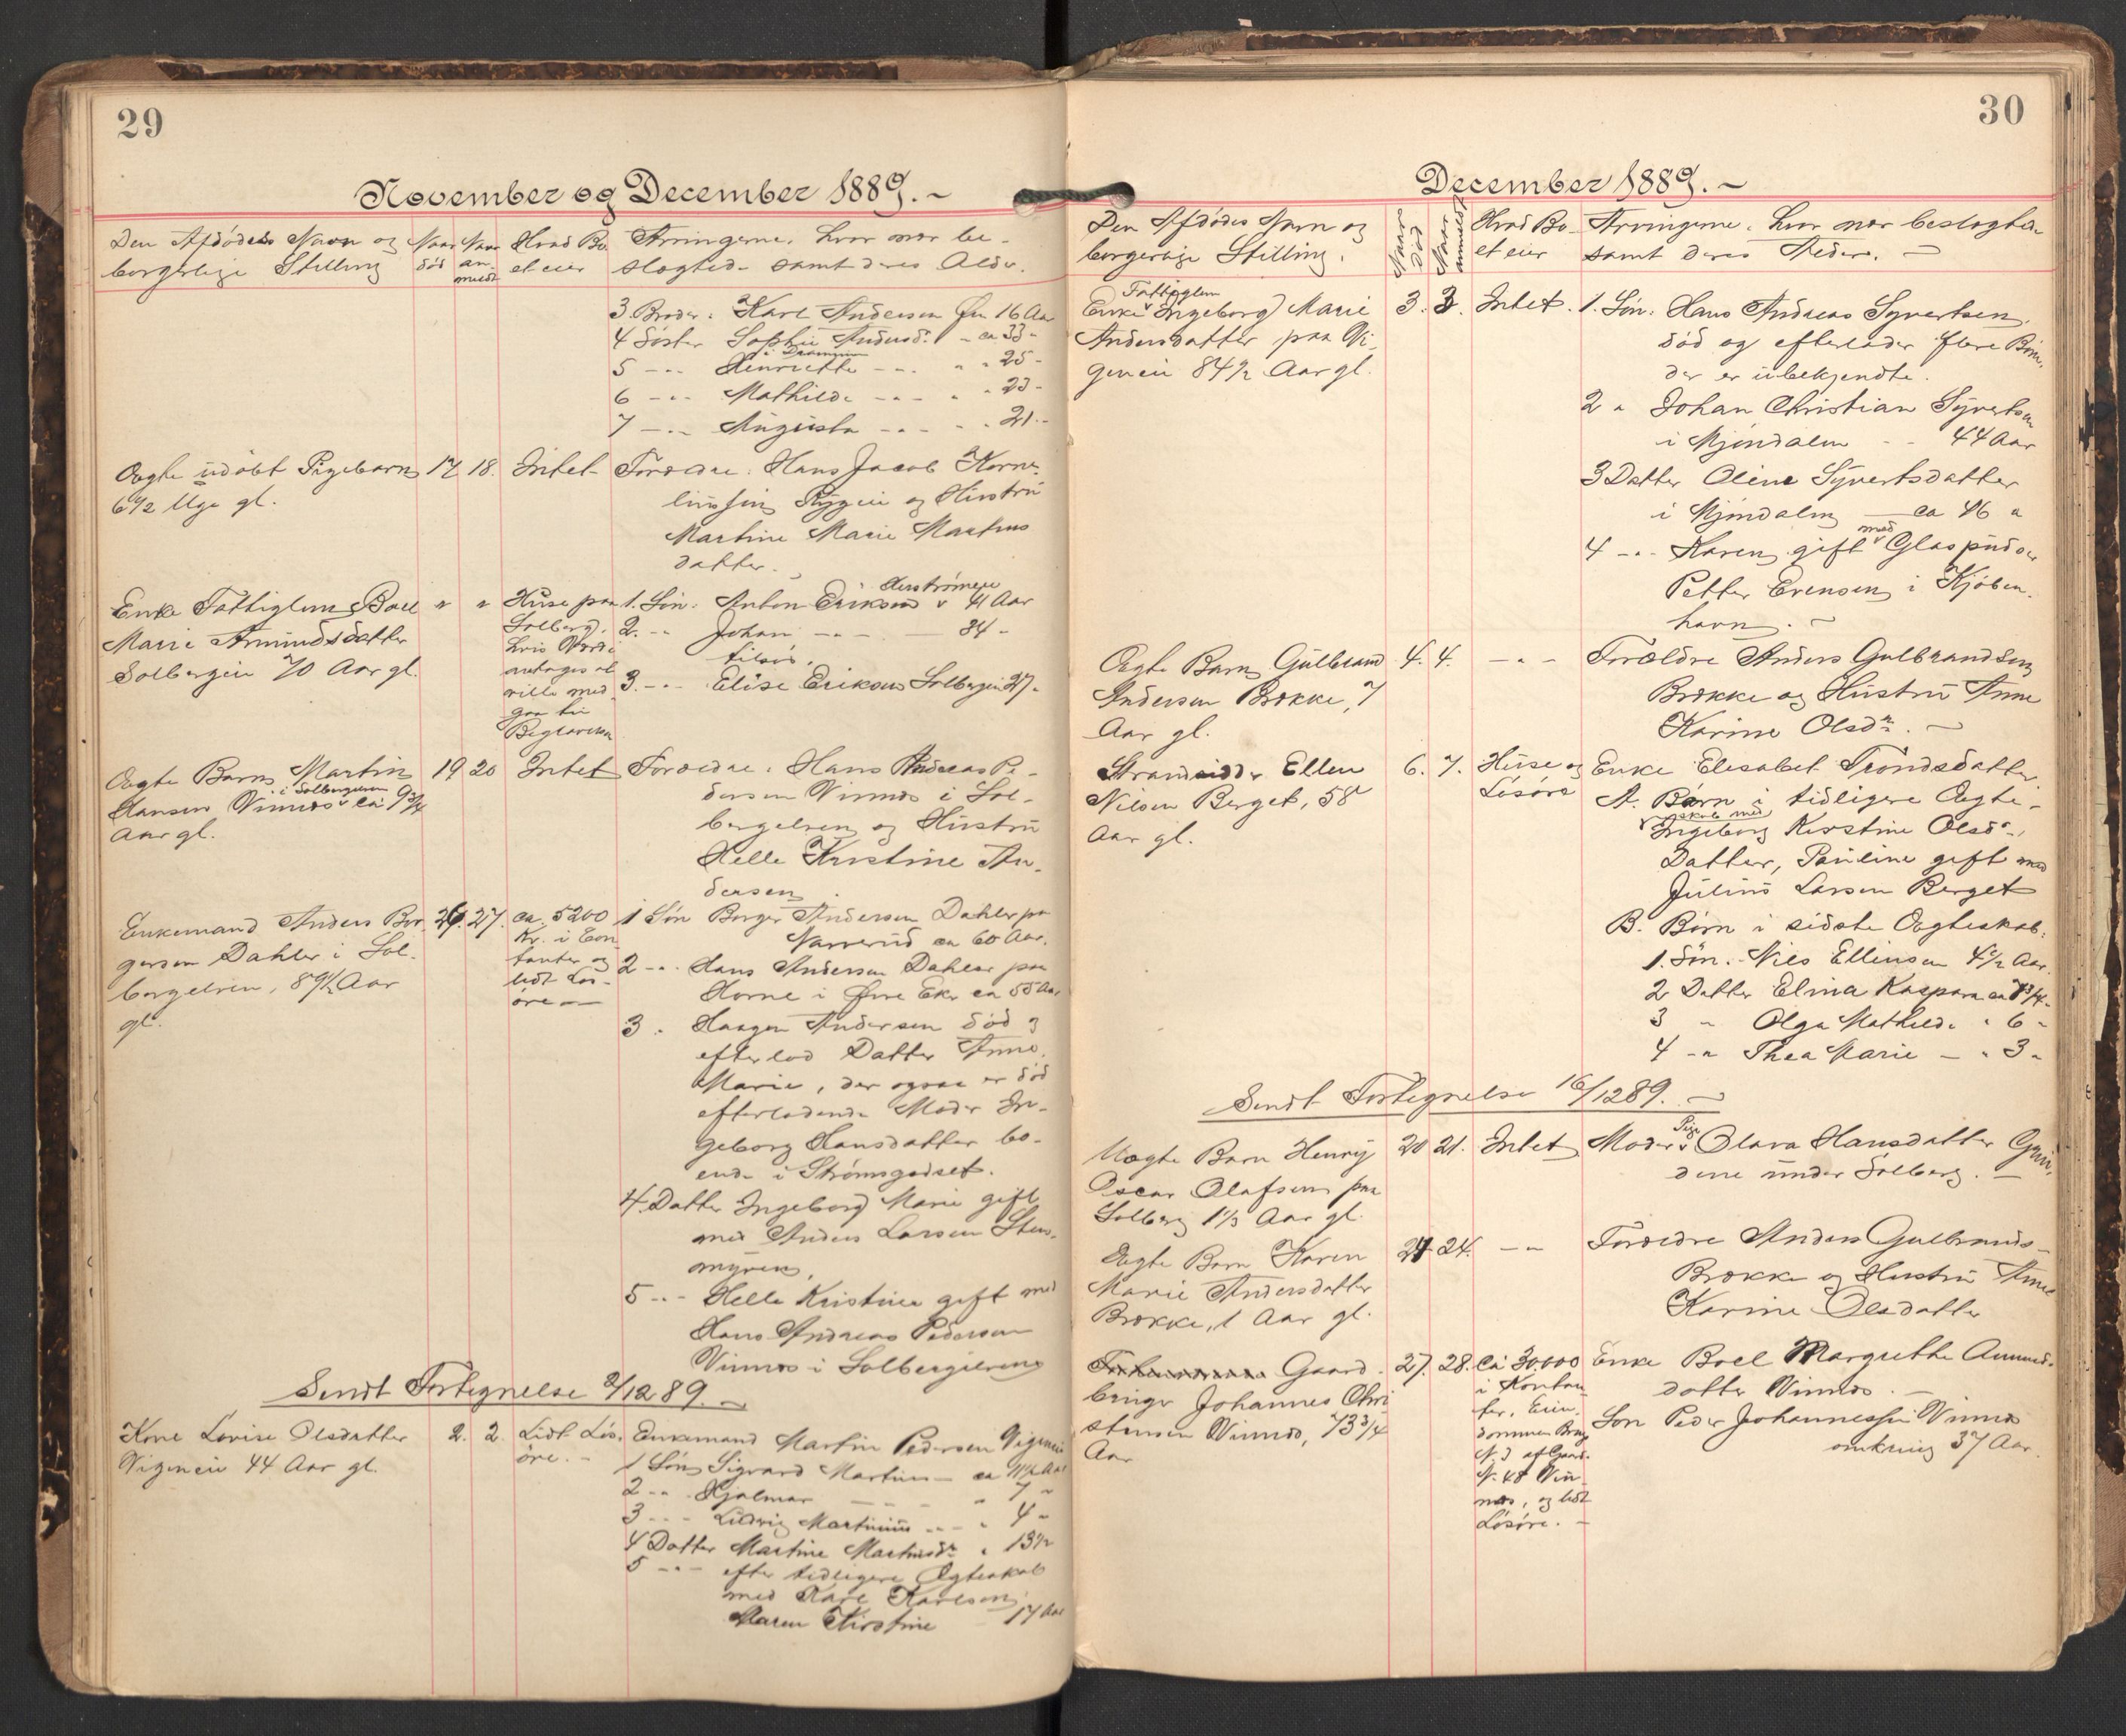 29
November og December 1889. -
Den Afdødes Navn og borgerlige Stilling
Naar død
Naar anmeldt
Hvad Boet eier
Arvingerne, hvor nær beslægtede samt deres Alder.
3. Broder: Karl Andersen 16 Aar
4 Søster Sophie Andersdr. - ca 33 -
i Drammen
5 - " - Henriette - " - " " 25 -
6 - " - Mathilde - " - " " 23 -
7 - " - Augusta - " - " " 21. -
Ægte udøbt Pigebarn 17 18. Intet Forældre: Hans Jacob Korne-
6 1/2 Uge gl.
liussen Ryggen og Hustru
Martine Marie Martins
datter.
Enke Fattiglem Boel " "
Marie Amundsdatter
Solbergeie 70 Aar gl.
Huse paa
Solberg,
hvis Værdi
antages at
ville med
gaa til
Begravelse
1. Søn: Anton Eriksen 41 Aar
2. - " Johan - " - - 34 -
tilsøs.
3. - " - Elise Eriksen Solbergeie 27 -
Ægte Barn Martin 19 20 Intet Forældre: Hans Andreas Pe-
i Solbergelven
Hansen Vinnæs ca 9 3/4
Aar gl.
dersen Vinnæs i Sol-
bergelven og Hustru
Helle Kristine An-
dersen
Enkemand Anders Bor- 26. 27.
gersen Dahler i Sol-
bergelven, 89 1/2 Aar
gl.
ca. 5200
Kr. i Con-
tanter og
lidt Løs-
øre -
1 Søn Borger Andersen Dahler paa
Narverud ca 60 Aar.
2 - " - Hans Andersen Dahler paa
Horne i Øvre Eker ca 55 Aar
3 " Haagen Andersen død og
efterlod Datter Anne
Marie, der ogsaa er død
efterladende Moder In-
geborg Hansdatter bo-
ende i Strømsgodset.
4. Datter Ingeborg Marie gift
med Anders Larsen Sten-
myren,
5 - " - Helle Kristine gift med
Hans Andreas Pedersen
Vinnæs i Solbergelven
Sendt Fortegnelse 2/12 89. -
Kone Lovise Olsdatter 2. 2. Lidt Løs-
øre. -
Vigeneie 44 Aar gl.
Enkemand Martin Pedersen Vigeneie
1 Søn Sigvard Martinsen - ca 11 1/2 Aar
2 - " Hjalmar - - - " 7 "
3 - " - Ludvig Martinius - " - " 4 "
4 Datter Martine Martinsdr. " 13 1/2
5 - " - efter tidligere Ægteskab
med Karl Karlsen
Maren Kirstine 17 Aar
30
December 1889. -
Den Afdødes Navn og borgerlige Stilling.
Naar død
Naar anmeldt
Hvad Boet eier
Arvingerne, hvor nær beslægtede samt deres Alder. -
Fattiglem
Enke Ingeborg Marie 3. 3. Intet.
Andersdatter paa Vi-
geneie 84 1/2 Aar gl.
1. Søn: Hans Andreas Syvertsen,
død og efterlader flere Børn,
der er ubekjendte.
2 " Johan Christian Syvertsen
i Mjøndalen - - 44 Aar
3 Datter Oline Syvertsdatter
i Mjøndalen - ca 46 "
4 - " - Karen gift med Glaspudser
Petter Evensen i Kjøben-
havn. -
Ægte Barn Gulbrand 4. 4. - " -
Andersen Brække, 7
Aar gl.
Forældre Anders Gulbrandsen
Brække og Hustru Anne
Karine Olsdr. -
Strandsidder Ellen 6. 7. Huse og
Løsøre
Nilsen Berget, 58
Aar gl.
Enke Elisabet Trondsdatter
A. Børn i tidligere Ægte-
skab med
Ingeborg Kirstine Olsdr.,
Datter, Pauline gift med
Julius Larsen Berget
B. Børn i sidste Ægteskab:
1. Søn. - Nils Ellinsen 4 1/2 Aar.
2 Datter Elina Kaspara ca 7 3/4 -
3 " Olga Mathilde " 6 -
4 - " Thea Marie - " 3 "
Sendt Fortegnelse 16/12 89. -
Uægte Barn Henrij 20 21. Intet
Oscar Olafsen paa
Solberg 1 1/3 Aar gl.
Moder Pige Olava Hansdatter
under Solberg. -
Ægte Barn Karen 24. 24. - "
Marie Andersdatter
Brække, 1 Aar gl.
Forældre Anders Gulbrands-
Brække og Hustru Anne
Karine Olsdatter
Gaard- 27. 28.
bruger Johannes Chri-
stensen Vinnæs, 73 3/4
Aar
ca 30.000
i Kontan-
ter, Eien-
dommen Brug
N. 3 af Gaard
N. 48 Vin-
næs, og lidt
Løsøre. -
Enke Boel Margrethe Amunds-
datter Vinnæs. -
Søn Peder Johannessen Vinnæs
omkring 37 Aar.